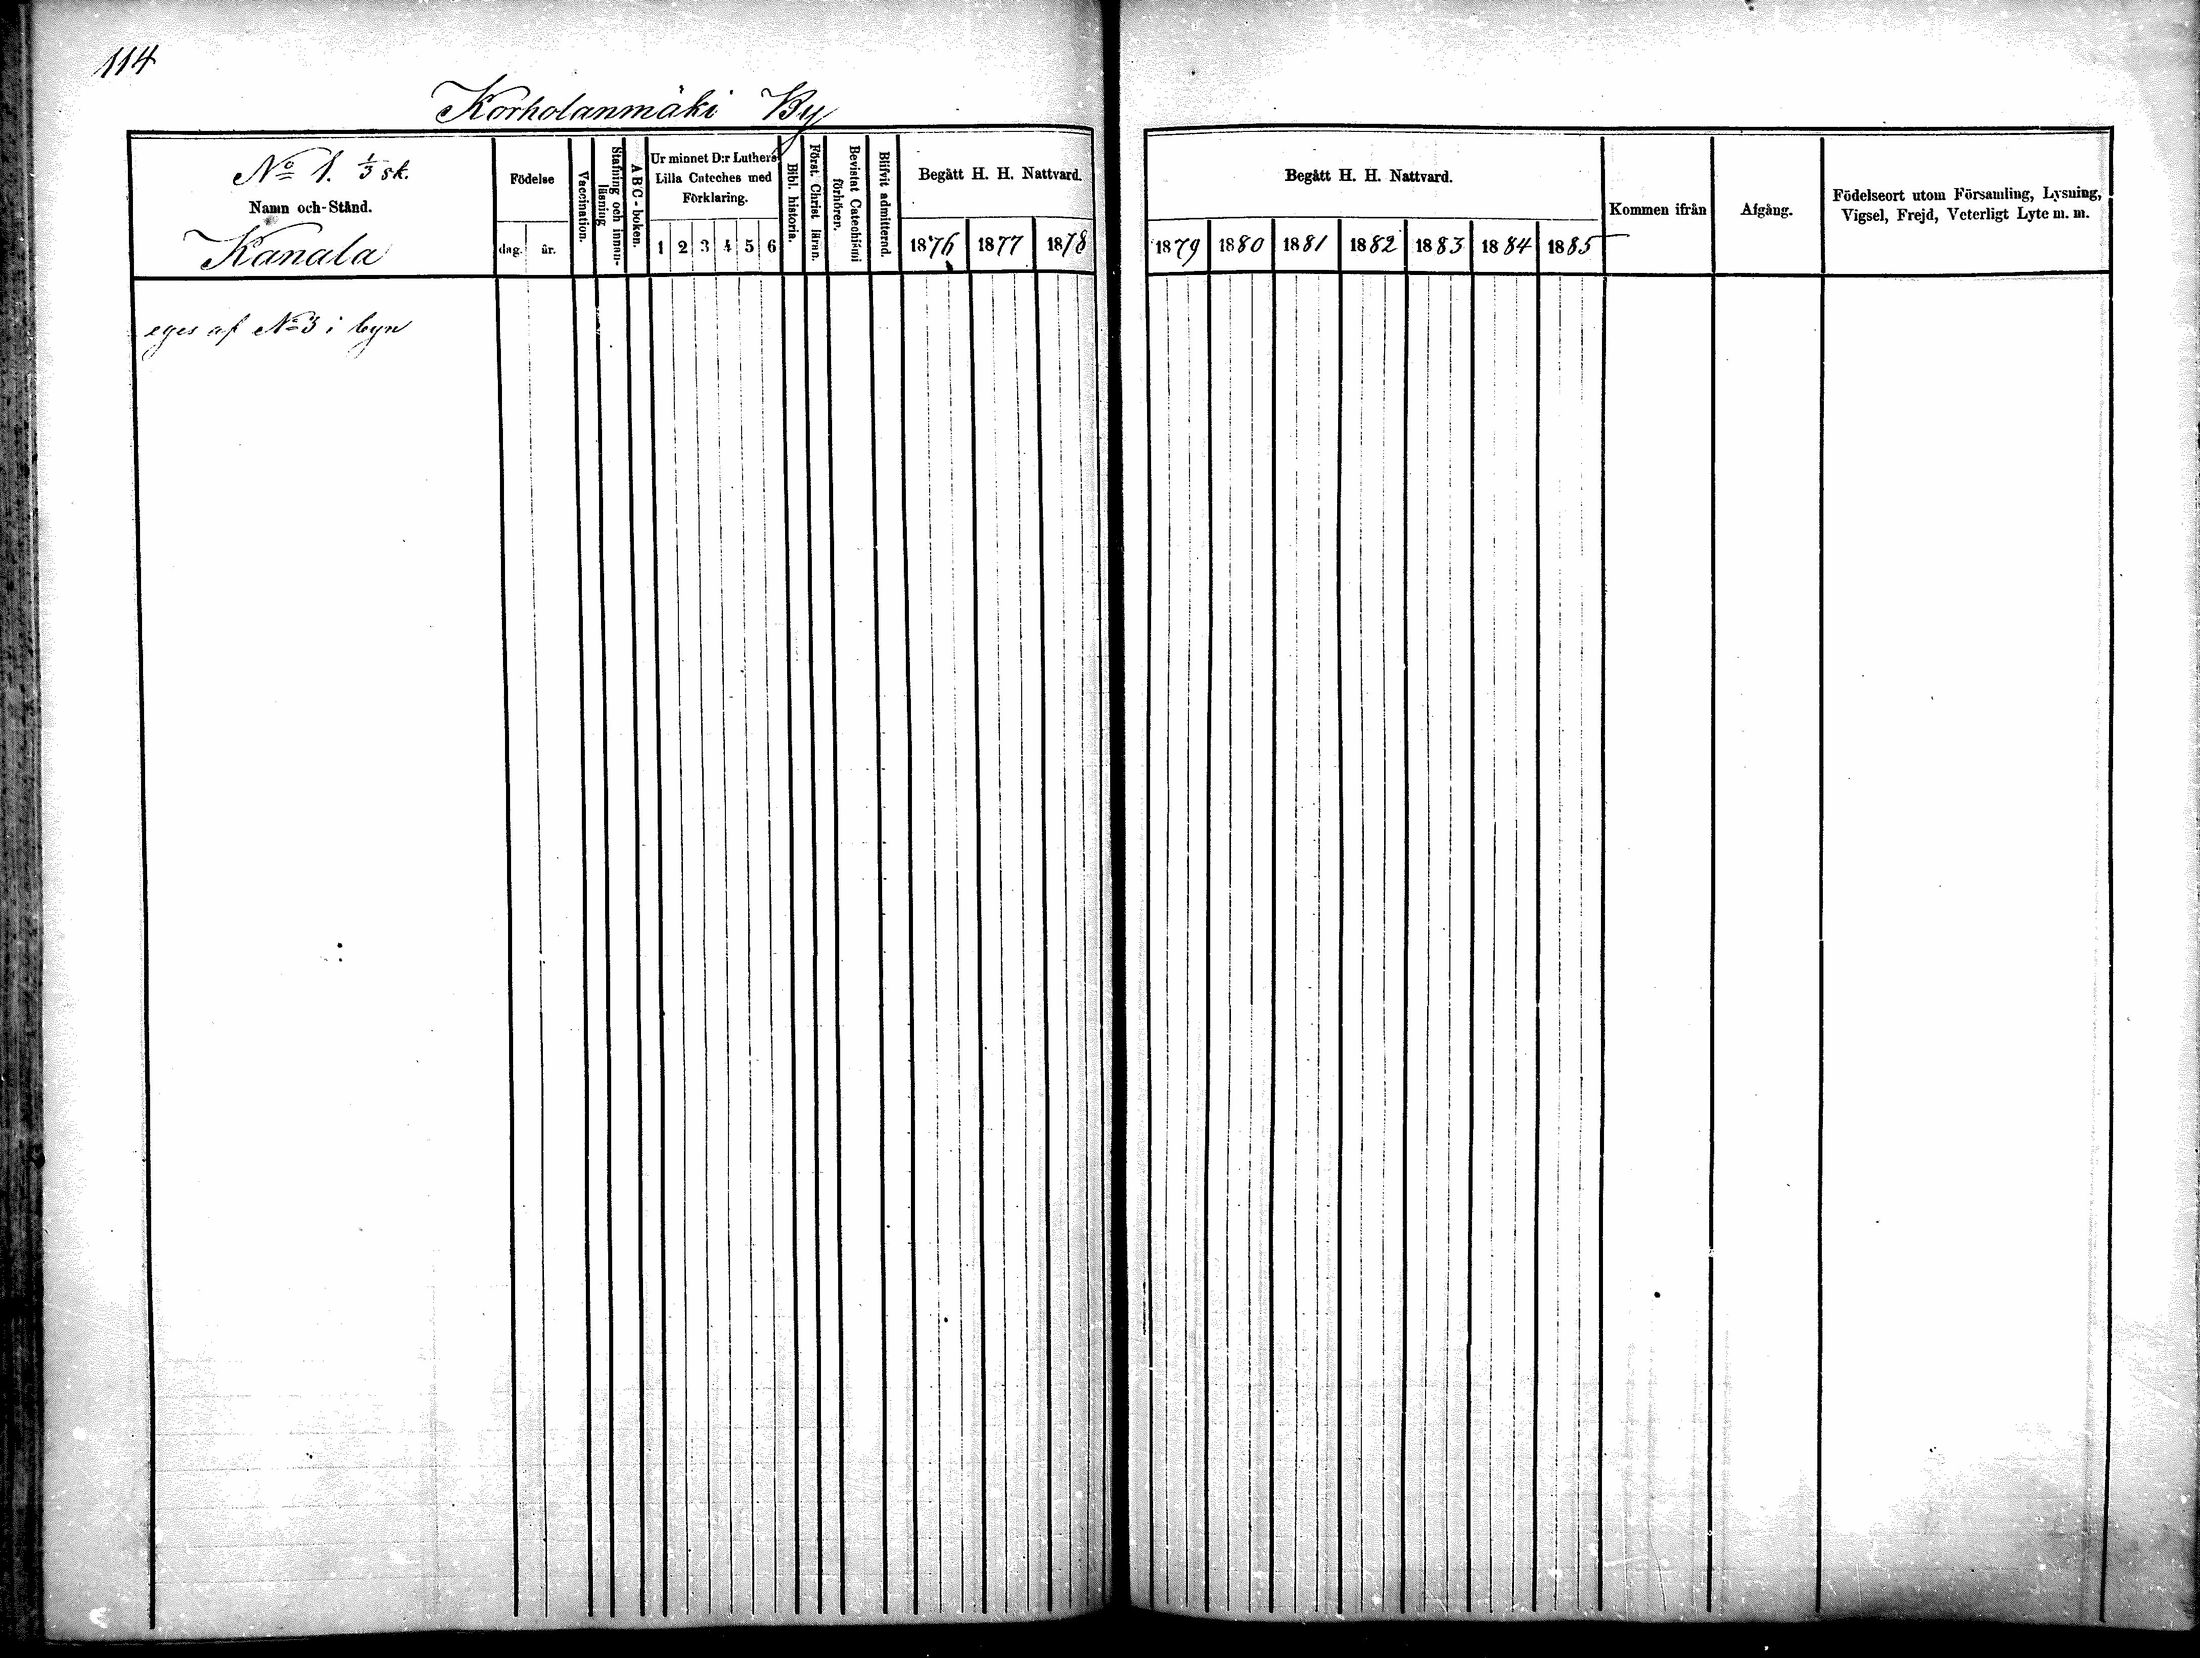 114
Korholanmäki By
No 1. 1/3 sk.
Namn och Stånd.
Kanala
Födelse
dag. år.
Vaccination.
Stafning och innanläsning
ABC-boken.
Ur minnet D:r Luthers
Lilla Cateches med
Förklaring.
1 2 3 4 5 6
Bibl. historia.
Först. Christ läran.
Bevistat Catechismi
förhören.
Blifvit admitterad.
Begått H. H. Nattvard.
1876 1877 1878
eges af No 3 i byn
Begått H. H. Nattvard.
1879 1880 1881 1882 1883 1884 1885
Kommen ifrån
Afgång.
Födelseort utom Församling, Lysning,
Vigsel, Frejd, Veterligt Lyte m. m.